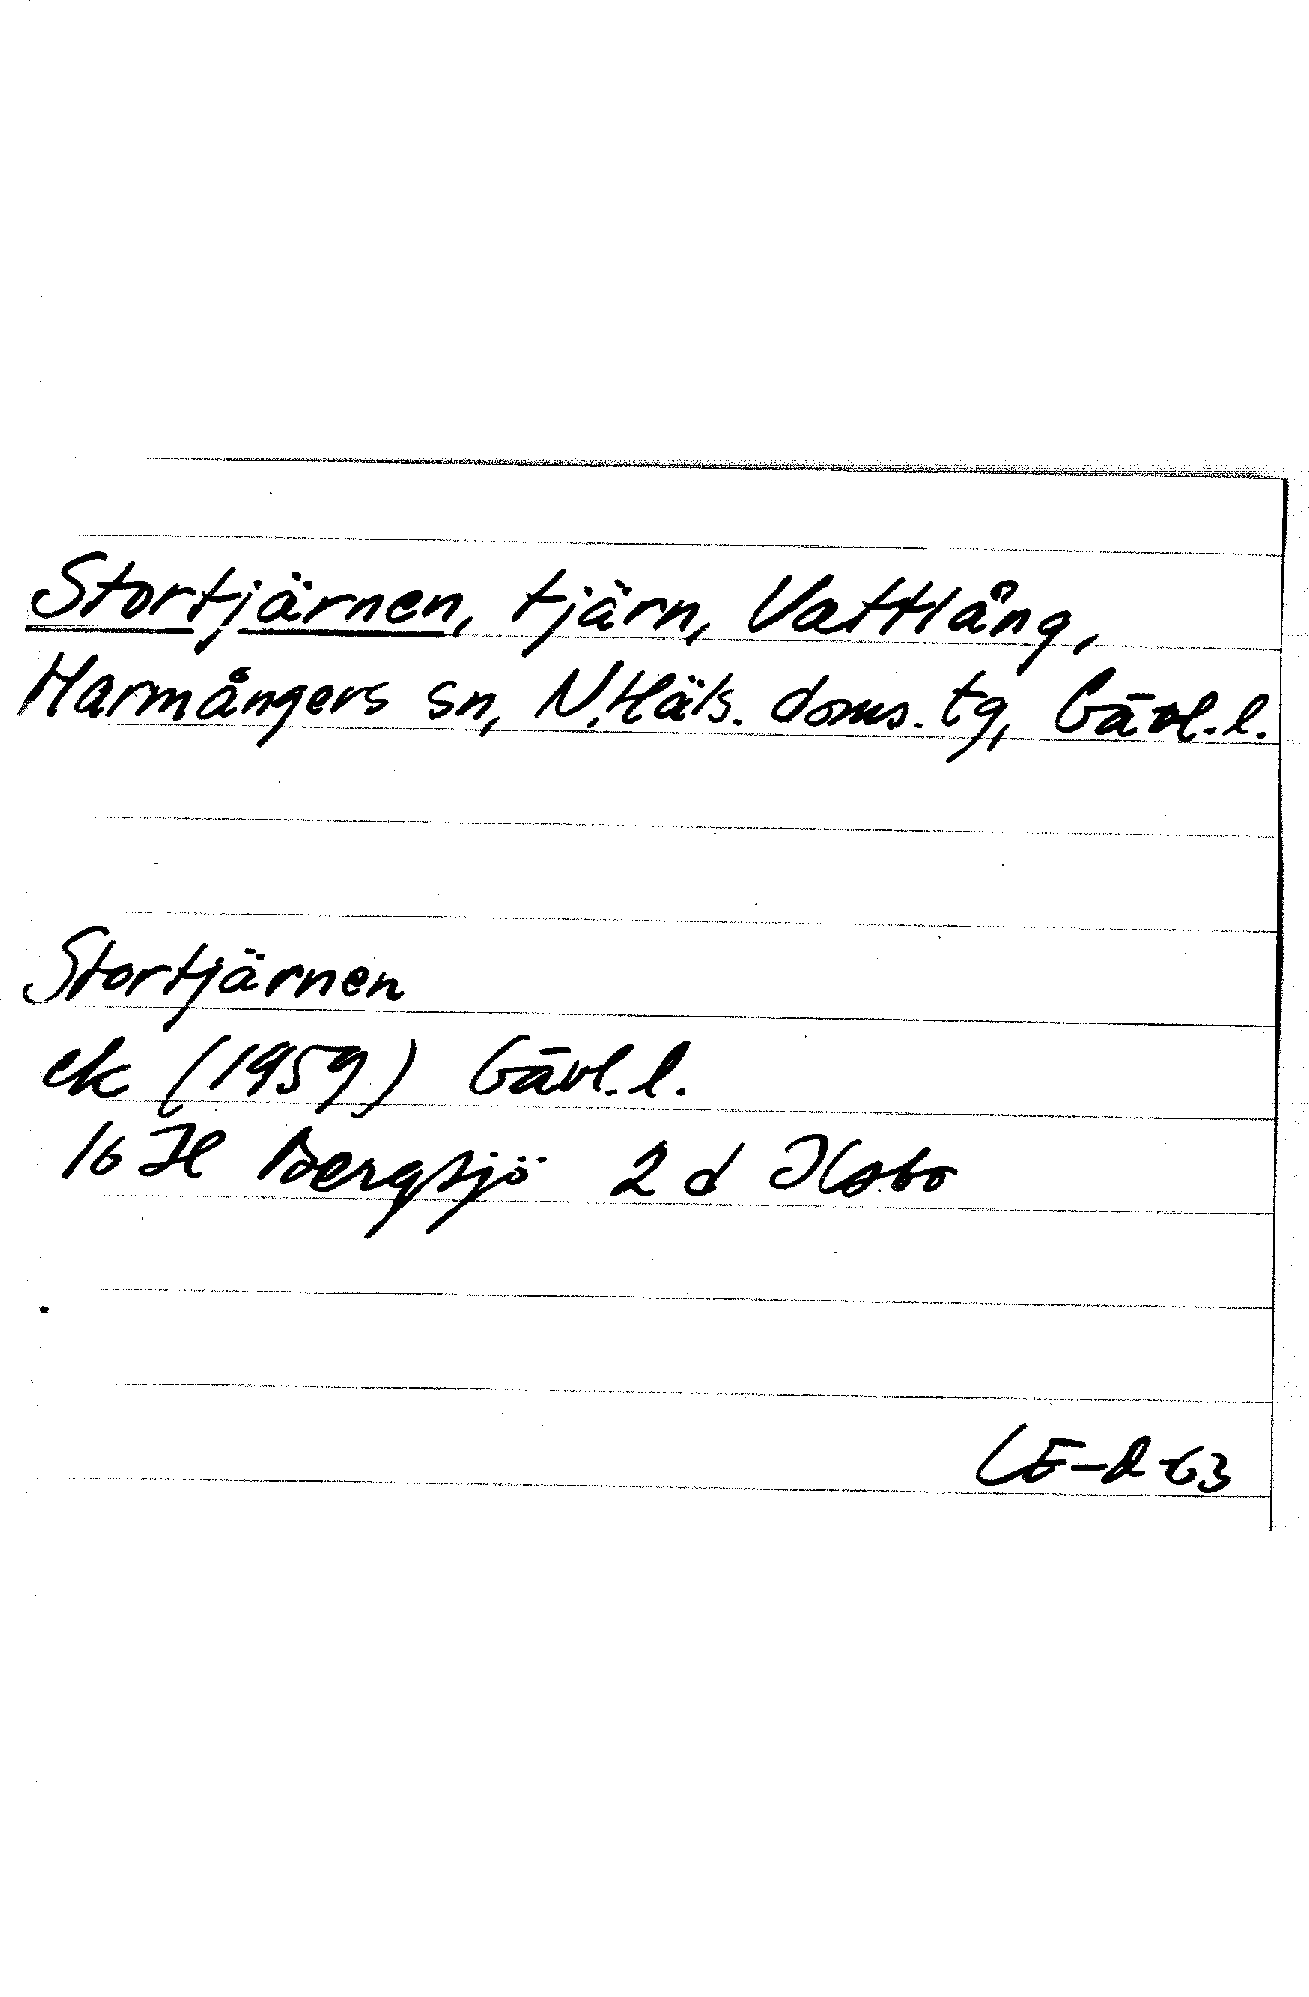 Stortjärnen, tjärn, Vattlång,
Harmångers sn, N. Häls. doms. tg, Gävl. l.
Stortjärnen
ek (1959) Gävl. l.
16 H Bergsjö 2 d Ilsbo